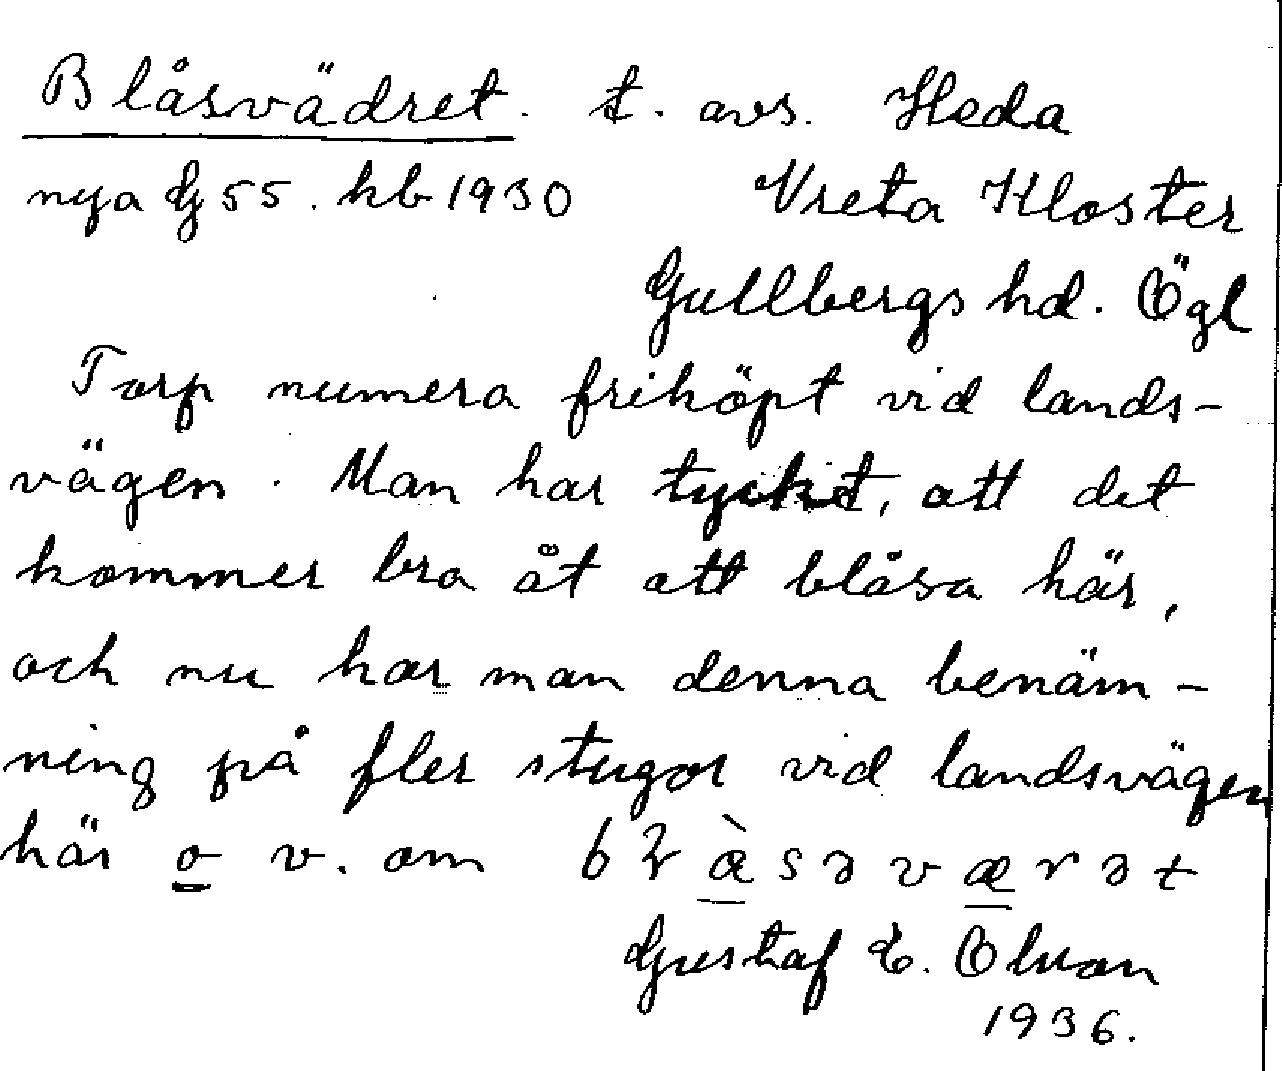 Blåsvädret. t. avs. Heda
nya Eg 55. kb 1930 Vreta Kloster
Gullbergs hd. Ögl
Torp numera friköpt vid lands-
vägen. Man har tyckt, att det
kommer bra åt att blåsa här,
och nu har man denna benäm-
ning på fler stugor vid landsvägen
här o v. om
Gustaf E. Olson
1936.